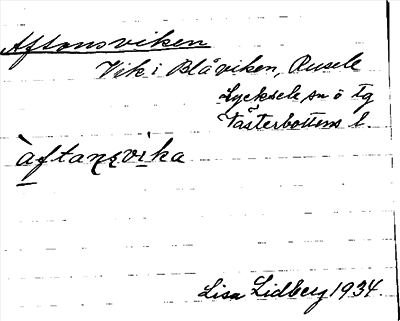 Aftonsviken
Vik i Blåviken, Rusele
Lycksele sn o tg
Västerbottens l.
àftanṣvika
Lisa Lidberg 1934